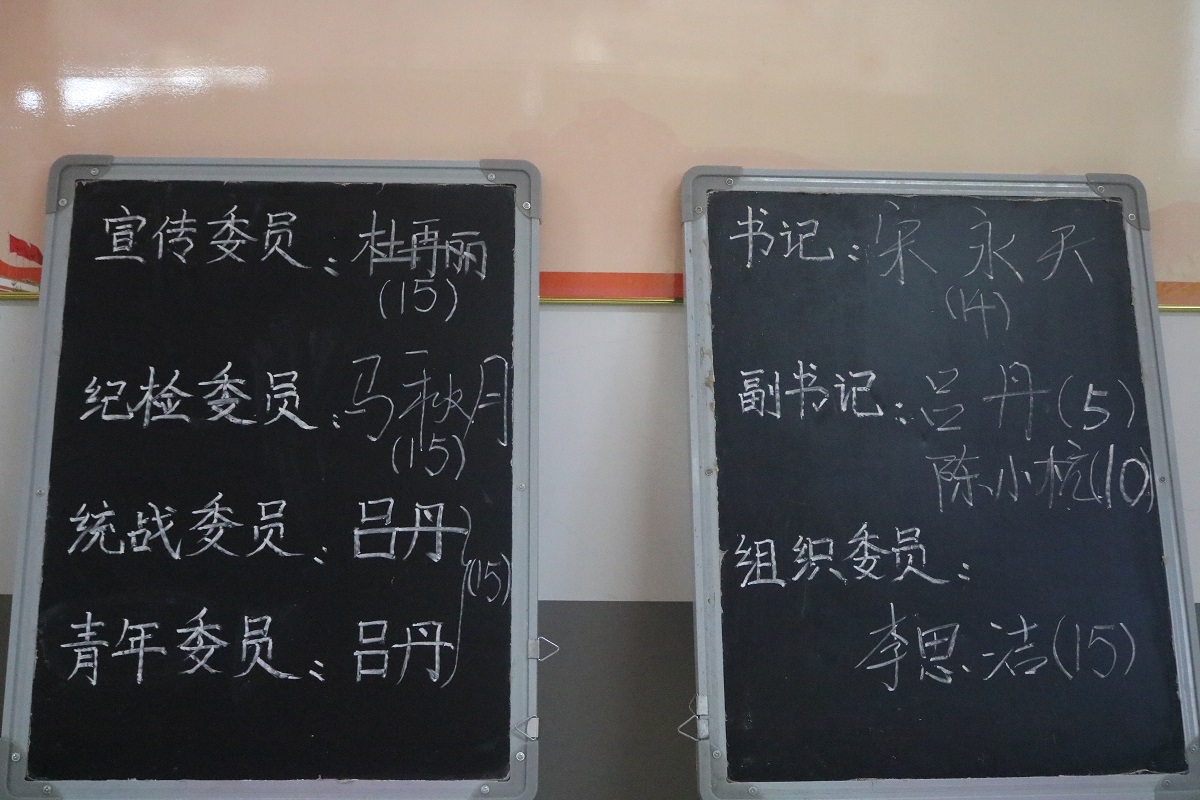 宣传委员：杜再丽
(15)
纪检委员：马秋月
(15)
统战委员：吕丹
(15)
青年委员：吕丹
书记：宋永天
(14)
副书记：吕丹(5)
陈小杭(10)
组织委员：
李思洁(15)